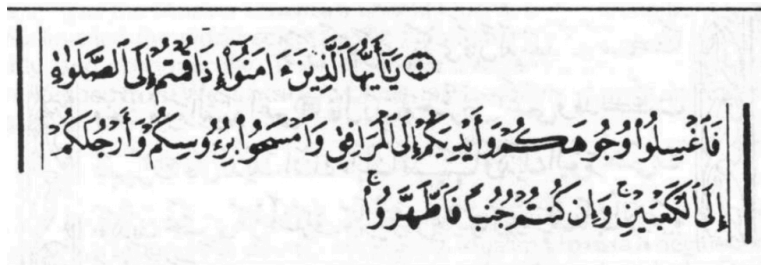 يَٰٓأَيُّهَا ٱلَّذِينَ ءَامَنُوٓا۟ إِذَا قُمْتُمْ إِلَى ٱلصَّلَوٰةِ
فَٱغْسِلُوا۟ وُجُوهَكُمْ وَأَيْدِيَكُمْ إِلَى ٱلْمَرَافِقِ وَٱمْسَحُوا۟ بِرُءُوسِكُمْ وَأَرْجُلَكُمْ
إِلَى ٱلْكَعْبَيْنِ ۚ وَإِن كُنتُمْ جُنُبًا فَٱطَّهَّرُوا۟ ۚ